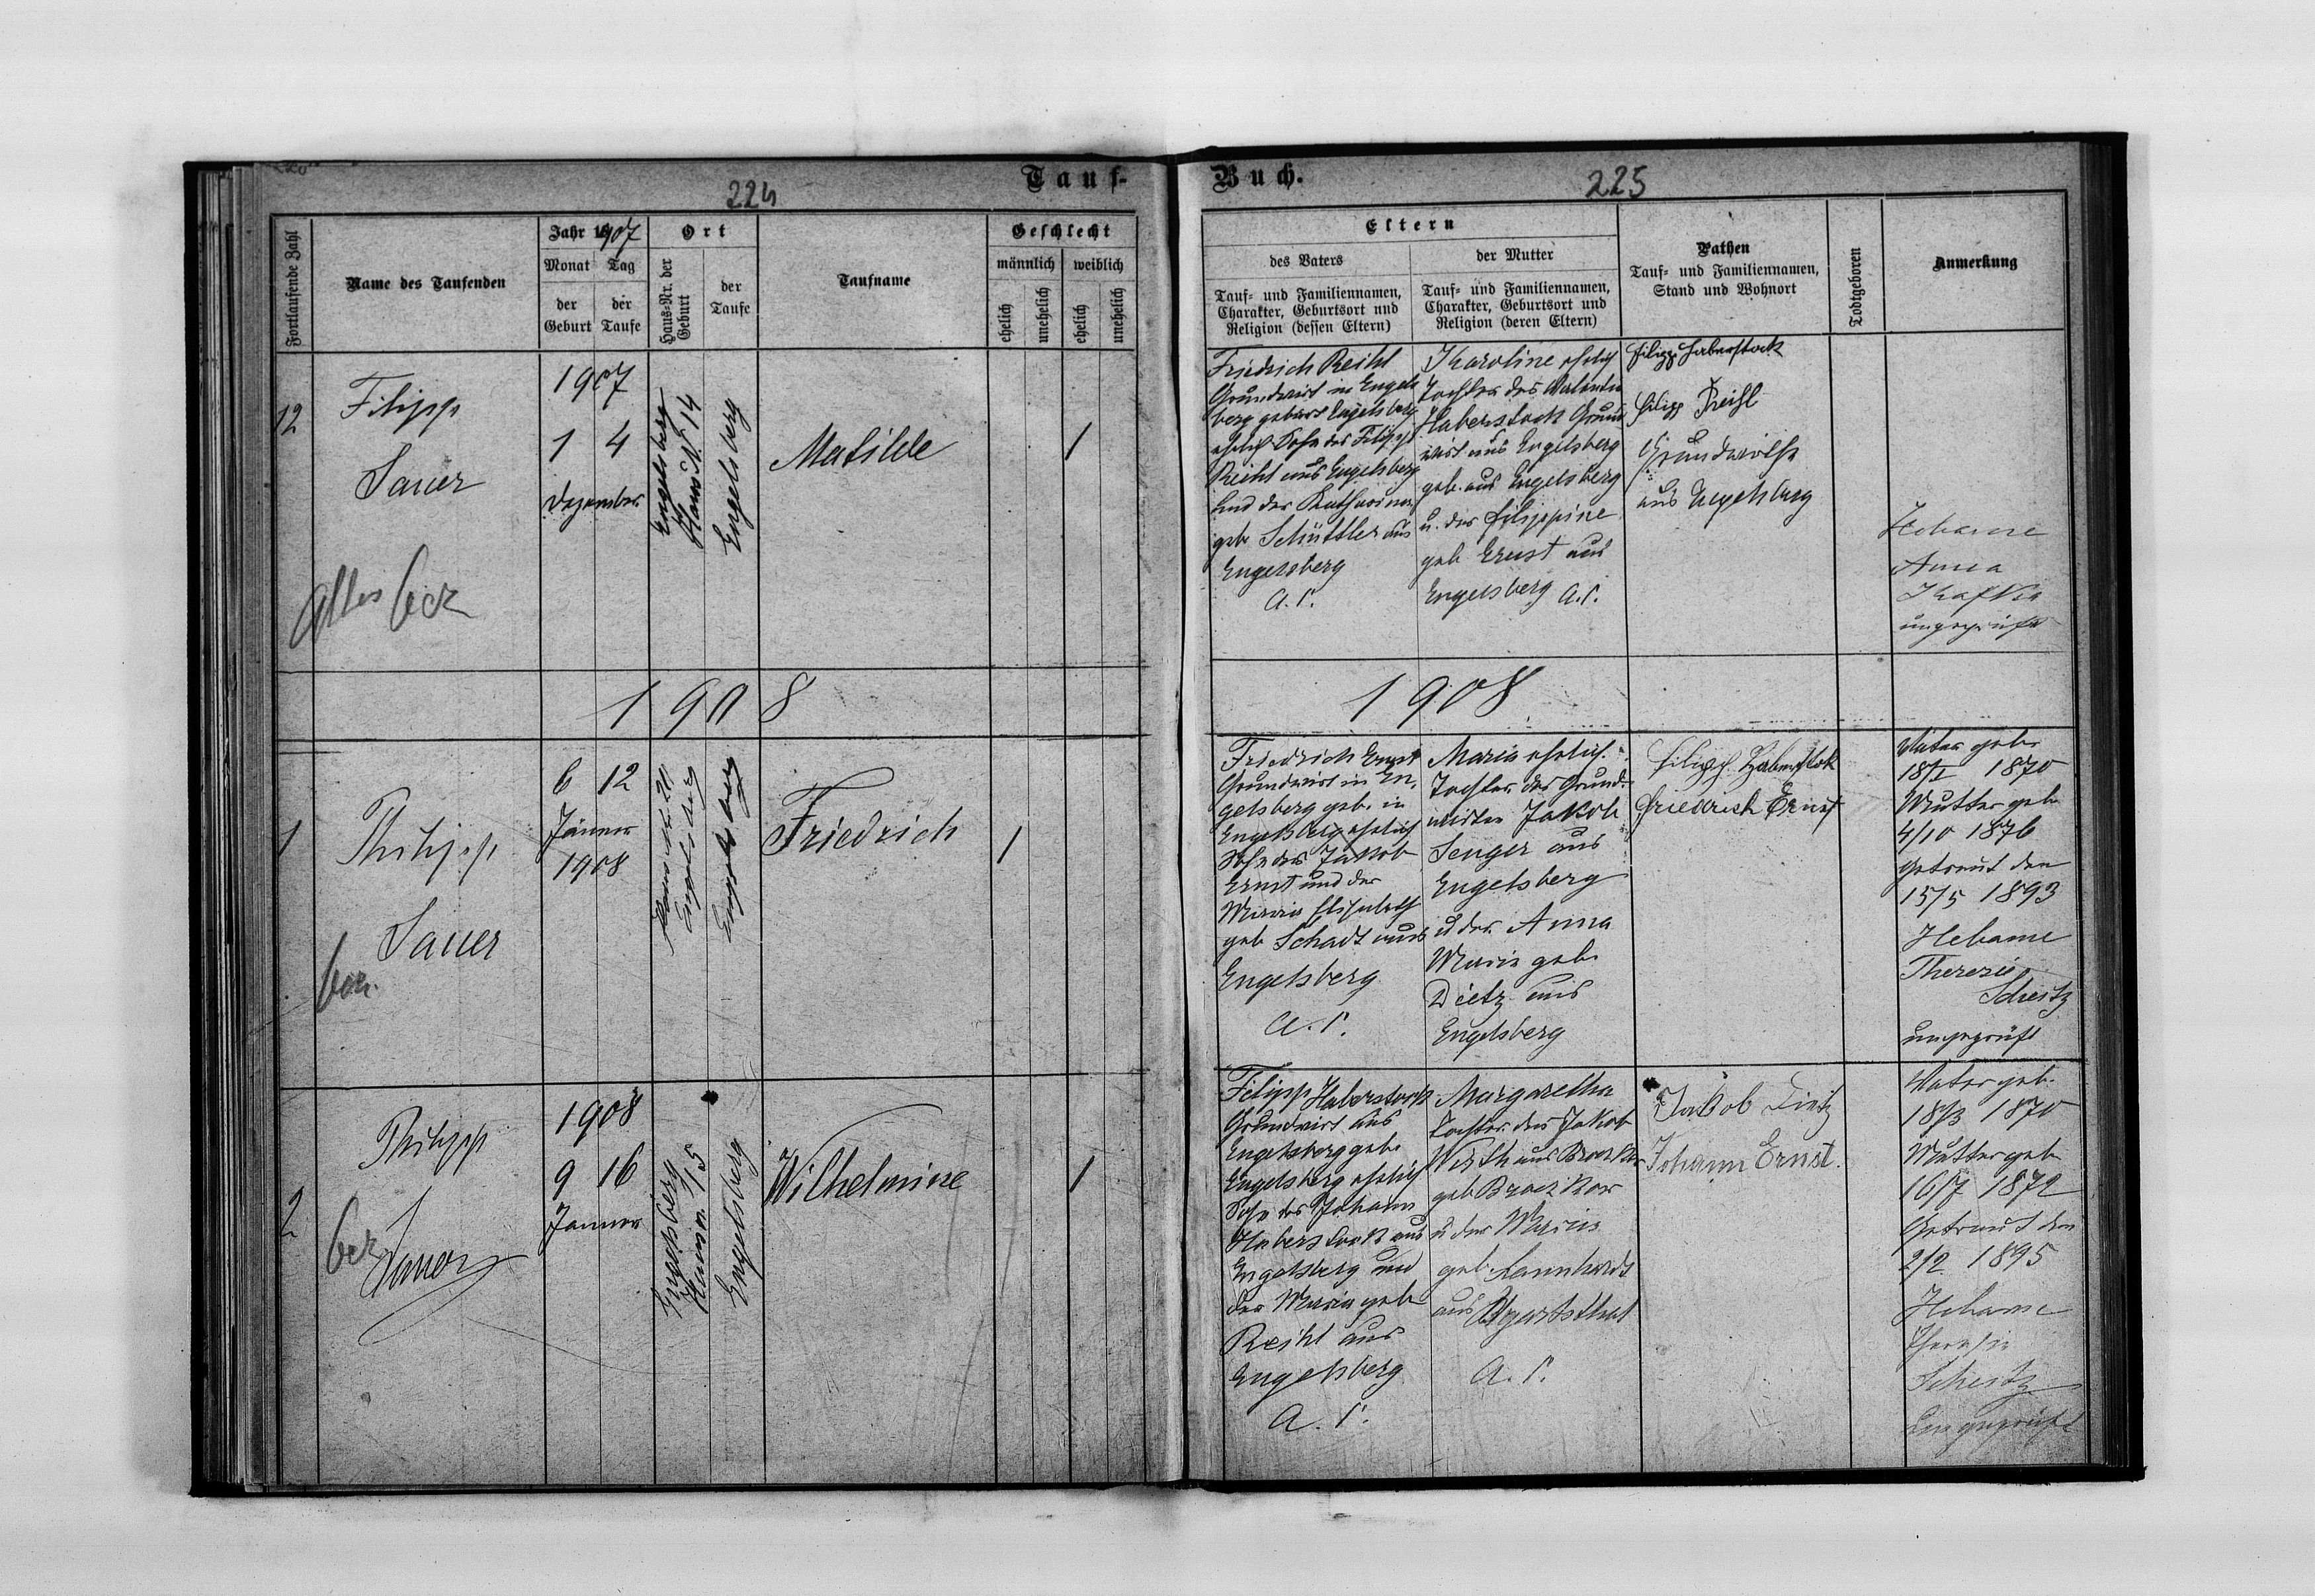 224
Tauf-
Fortlaufende Zahl
Name des Taufenden
Jahr 1907
Monat
Tag
der Geburt
der Taufe
Ort
Haus-Nr. der Geburt
der Taufe
Taufname
Geschlecht
männlich
weiblich
ehelich
unehelich
ehelich
unehelich
12
Filipp
Sauer
Alles
1907
1 4
Dezember
Engelsberg
Haus Nº 14
Engelsberg
Matilde
1
1908
1
Philipp
Sauer
6 12
Jänner
1908
Engelsberg
Engelsberg
Friedrich
1
2
Philipp
Sauer
1908
9 16
Janner
Engelsberg
Engelsberg
Wilhelmine
1
Buch.
225
Eltern
des Vaters
Tauf- und Familiennamen,
Charakter, Geburtsort und
Religion (dessen Eltern)
der Mutter
Tauf- und Familiennamen,
Charakter, Geburtsort und
Religion (deren Eltern)
Pathen
Tauf- und Familiennamen,
Stand und Wohnort
Todtgeboren
Anmerkung
Friedrich Reihl
Grundwirt in Engels
berg geburt Engelsberg
ehelich Sohn des Filipp
Reihl aus Engelsberg
und der Katharina
geb Schüttler aus
Engelsberg
A. C.
Karoline ehelich
Tochter des Valentin
Haberstock Grund
wirt aus Engelsberg
geb. aus Engelsberg
u. der Filippine
geb Ernst aus
Engelsberg A. C.
Filipp Haberstock
Filipp Reihl
Grundwirthe
aus Engelsberg
Hebame
Anna
Kafka
ungeprüft
1908
Friedrich Ernst
Grundwirt in En
gelsberg geb. in
Engelsberg ehelich
Sohn des Jakob
Ernst und der
Maria Elisabeth
geb Schadt aus
Engelsberg
A. C.
Maria ehelich.
Tochter des Grund-
wirten Jakob
Senger aus
Engelsberg
u der Anna
Maria geb.
Dietz aus
Engelsberg
Filipp Haberstok
Friedrich Ernst
Vater geb.
18/I 1870
Mutter geb
4/10 1876
Getraut den
15/5 1893
Hebame
Theresie
Scheitz
ungeprüft
Filipp Haberstock
Grundwirt aus
Engelsberg geb.
Engelsberg ehelich
Sohn des Johann
Haberstock aus
Engelsberg und
der Maria geb
Reihl aus
Engelsberg
A. C.
Margaretha
Tochter des Jakob
Wirth aus
geb
u der Maria
geb.
aus Ugartsthal
A. C.
Jakob Dietz
Johann Ernst.
Vater geb.
18/3 1870
Mutter geb
16/7 1872
Getraut den
2/2 1895
Hebame
Theresie
Scheitz
Ungeprüft